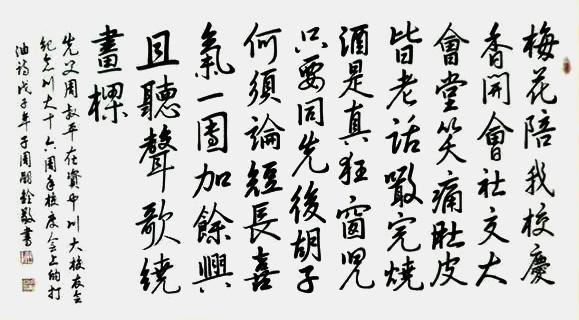 梅花陪我校慶
香開會社交大
會堂笑痛肚皮
皆老話噉完燒
酒是真狂窗兒
只要同先後胡子
何須論短長喜
氣一團加餘興
且聽聲歌繞
畫樑
先父周叔平在資中川大校友會
紀念川大十六周年校慶會上的打
油詩戊子年子周嗣銓敬書